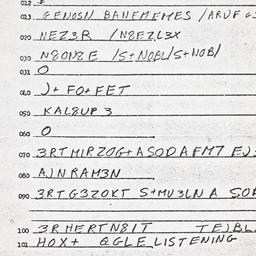 012
013 GENOSN BANEMEMES / ARUF
020 NEZ3R / N8EZL3X
030 N8ON8E /S+NOBL/S+NOB/
031 O
040 J+ FO+FET
050 KAL8UP 3
060 O
070 3RTMIRZOG+ASODAFM7 EJ
080 AJNRAM3N
090 3RTG3ZOKT S+MU3LNA SO
100 3RHERTN8IT TEJBL
101 HOX+ QGLE LISTENING